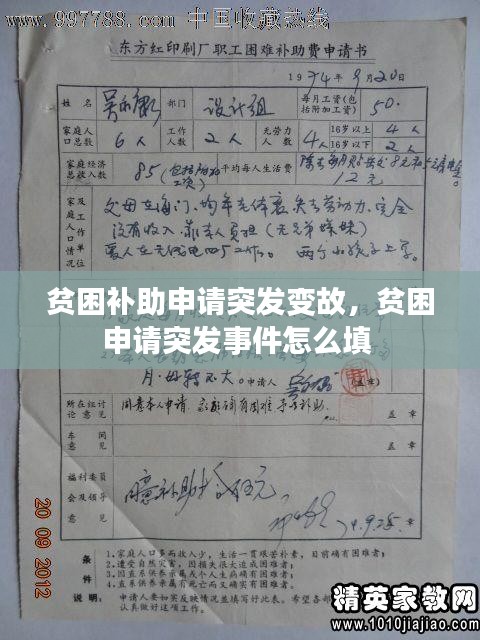 www.997788.com 中国收藏热线
东方红印刷厂职工困难补助费申请书
1974年9月20日
姓名 部门 设计组 每月工资(包括附加工资) 50.
家庭人口总数 6人 工作人数 2人 无劳力人数 4人 16岁以上 4人
16岁以下 2人
家庭经济总收入数 85(包括附加工资) 平均每人生活费
12元
家庭人口情况及工作单位
父母在海门、均年老体衰、失去劳动力、完全
没有收入、靠本人负担(无兄弟妹妹)
爱人在无线电四厂工作。两个小孩子上学。
贫困补助申请突发变故，贫困
申请突发事件怎么填
申请人 (盖章)
所在组讨论意见 同意本人申请、家庭确有困难 予以补助. 盖章
车间意见 盖章
福利委员会及领导意见
74.9.25 盖章
条件:
1、家庭人口多而收入少，生活一贯艰苦朴素，目前确有困难者；
2、遭受自然灾害，因损失很大造成困难者；
3、因直系供养亲属或个人生病确有困难者；
4、因直系供养亲属有死亡而又确实有困难者。
说明: 申请人要如实反映情况并填写好此表。希望各部
认真做好这项工作。
20 09 2012
精英家教网
www.1010jiajiao.com